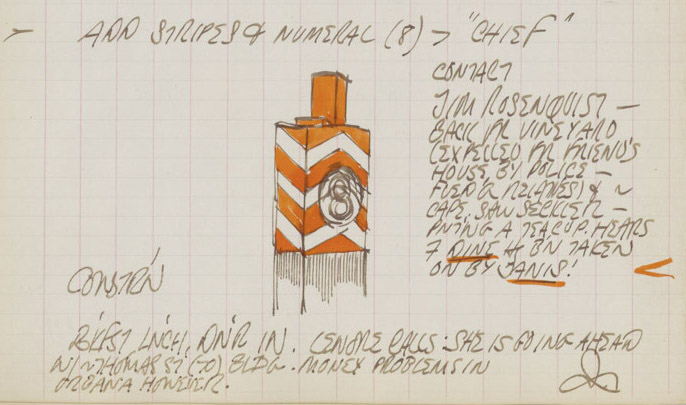 ADD STRIPES & NUMERAL (8) > "CHIEF"
CONTACT
JIM ROSENQUIST —
BACK FR VINEYARD
(EXPELLED FR FRIEND'S
HOUSE BY POLICE —
FUED'G RELATIVES) & ~
CAPE. SAW SECKLER —
PNTING A TEACUP. HEARS
DINE H BN TAKEN
ON BY JANIS!
8
CONSTR'N
BKFST LNCH, DN'R IN. LENORE CALLS: SHE IS GOING AHEAD
W/ ~ THOMAS ST BLDG. MONEY PROBLEMS IN
URBANA HOWEVER.